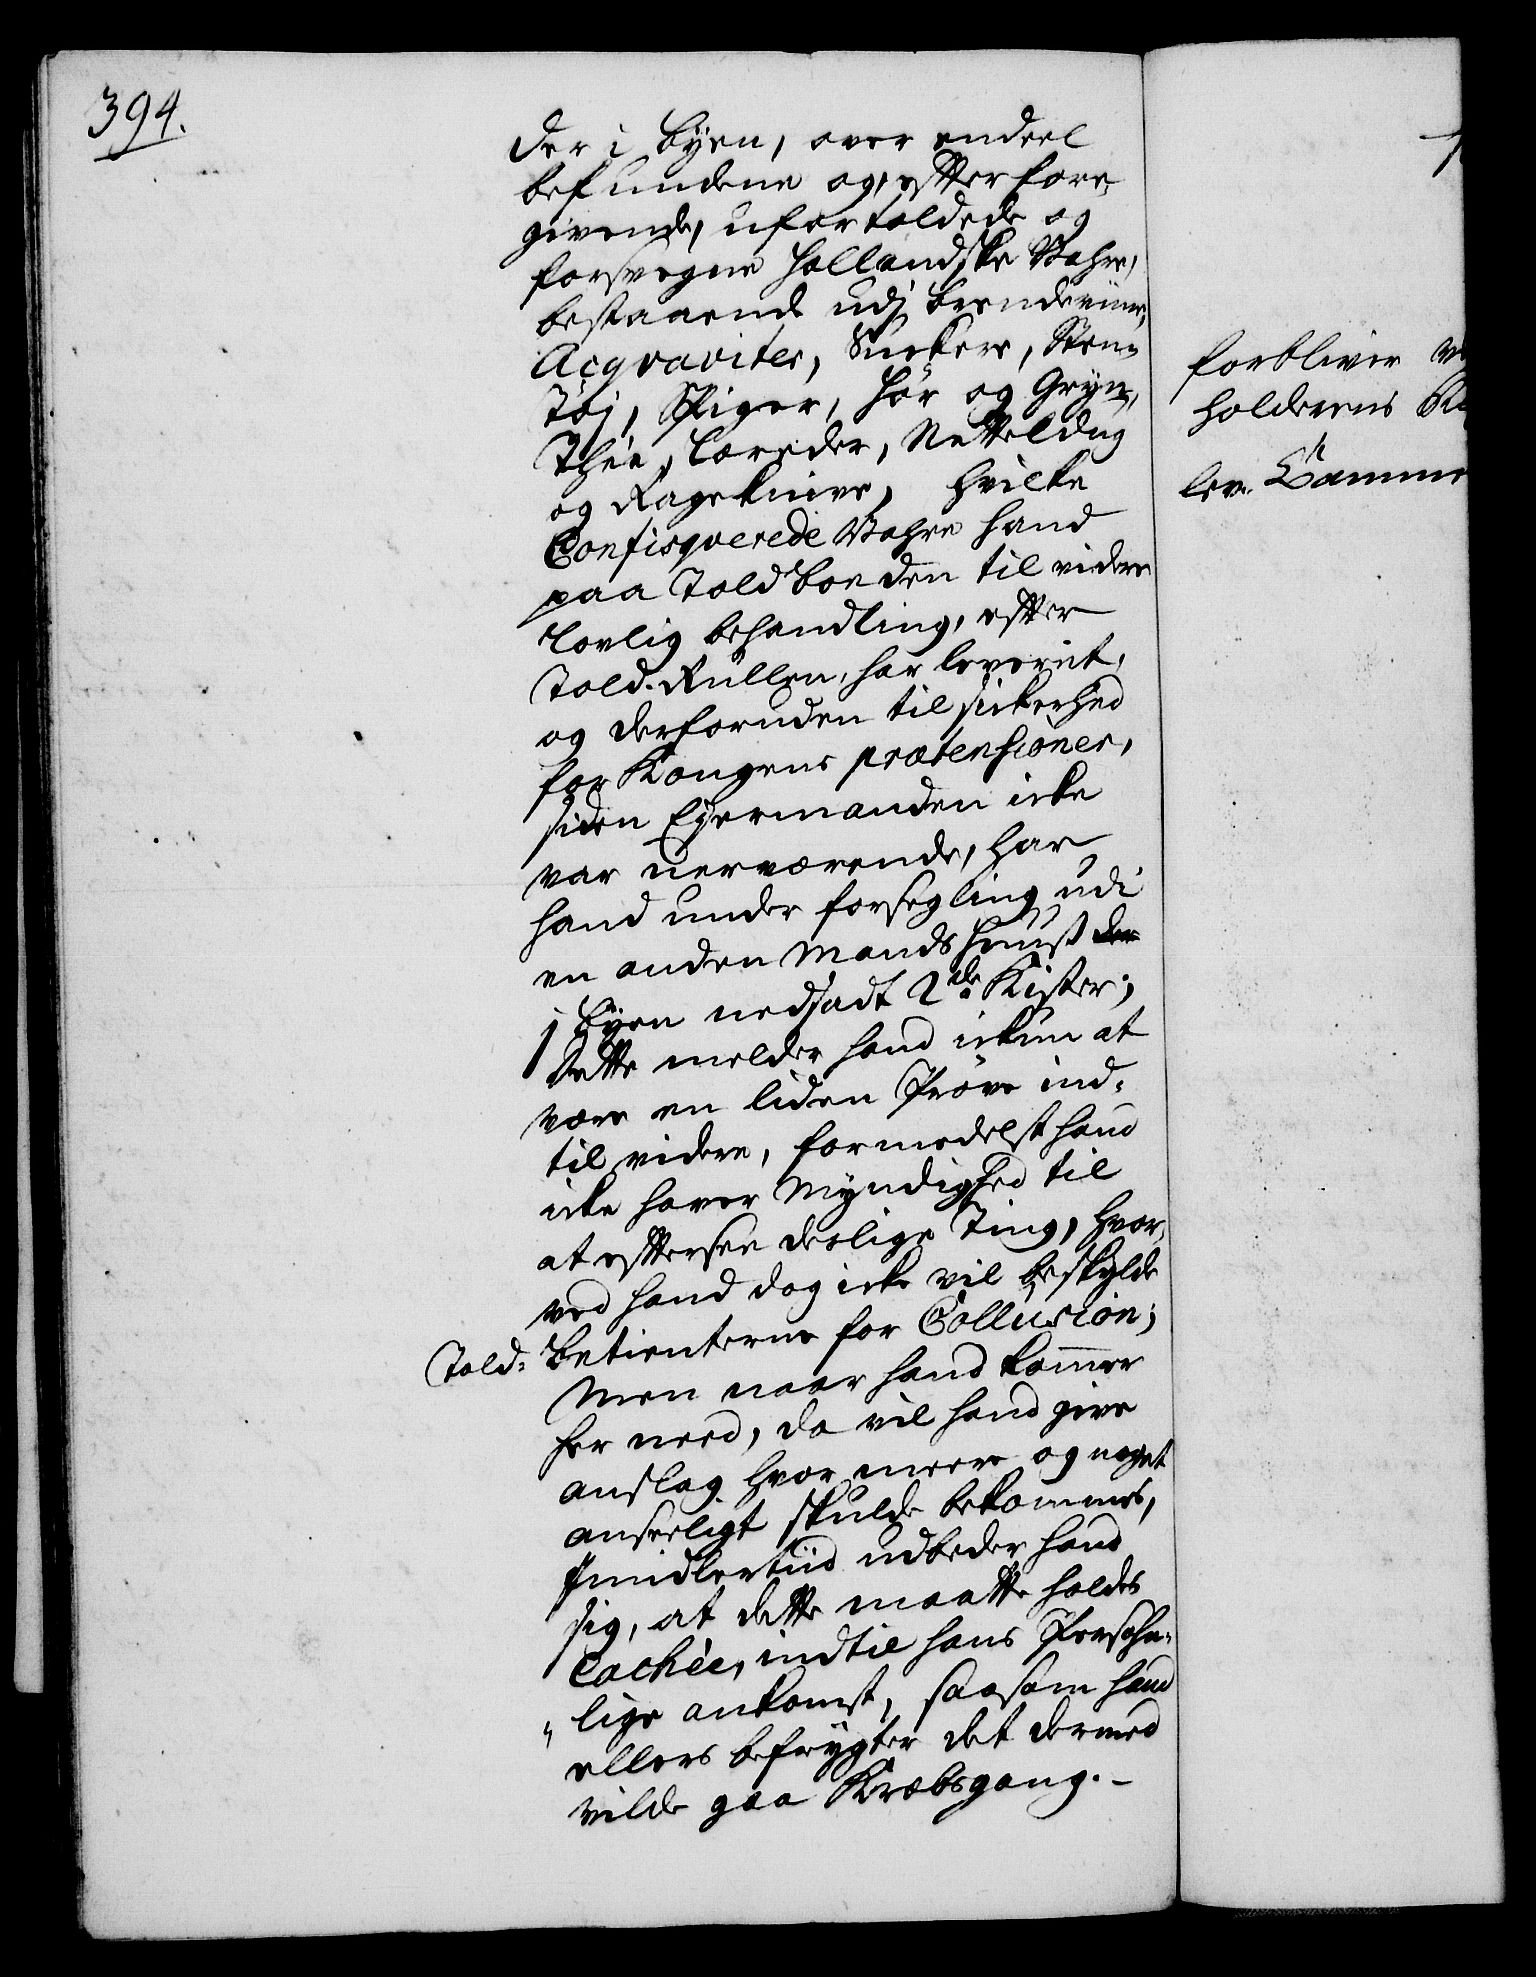 394.
der i Byen, over endeel
befundene og, efter fore
givende, ufortoldede og
forsvegne Hollandske Vahre,
bestaaende udj Brendeviine,
Acqvaviter, Sucker, Steen
Töj, Spiger, Hör og Gryn,
Thée, Lereder, Netteldug
og Ragekniver, hvilke
Confisqverede Vahre hand
paa Toldboeden til videre
lovlig behandling, efter
Told-Rullen, har leveret,
og derforuden til sickerhed
for Kongens prætensioner,
siden Ejermanden icke
var nerværende, har
hand under forsegling udi
en anden Mands Huus der
i Byen nedsadt 2de Kister;
Dette melder hand ickun at
være en liden Pröve ind-
til videre, formedelst hand
icke haver Myndighed til
at eftersee deslige Ting, hvor
ved hand dog icke vil beskylde
Told- Betienterne for Collusion;
Men naar hand kommer
her need, da vil hand give
anslag hvor meere og noget
anseeligt skulde bekommes,
Jmidlertiid udbeder hand
sig, at dette maatte holdes
cachée, indtil hans Persohn-
lige ankomst, saasom hand
ellers befrygter det dermed
vilde gaa Kræbsgang.-
forbliver
holderens
lev. Camme